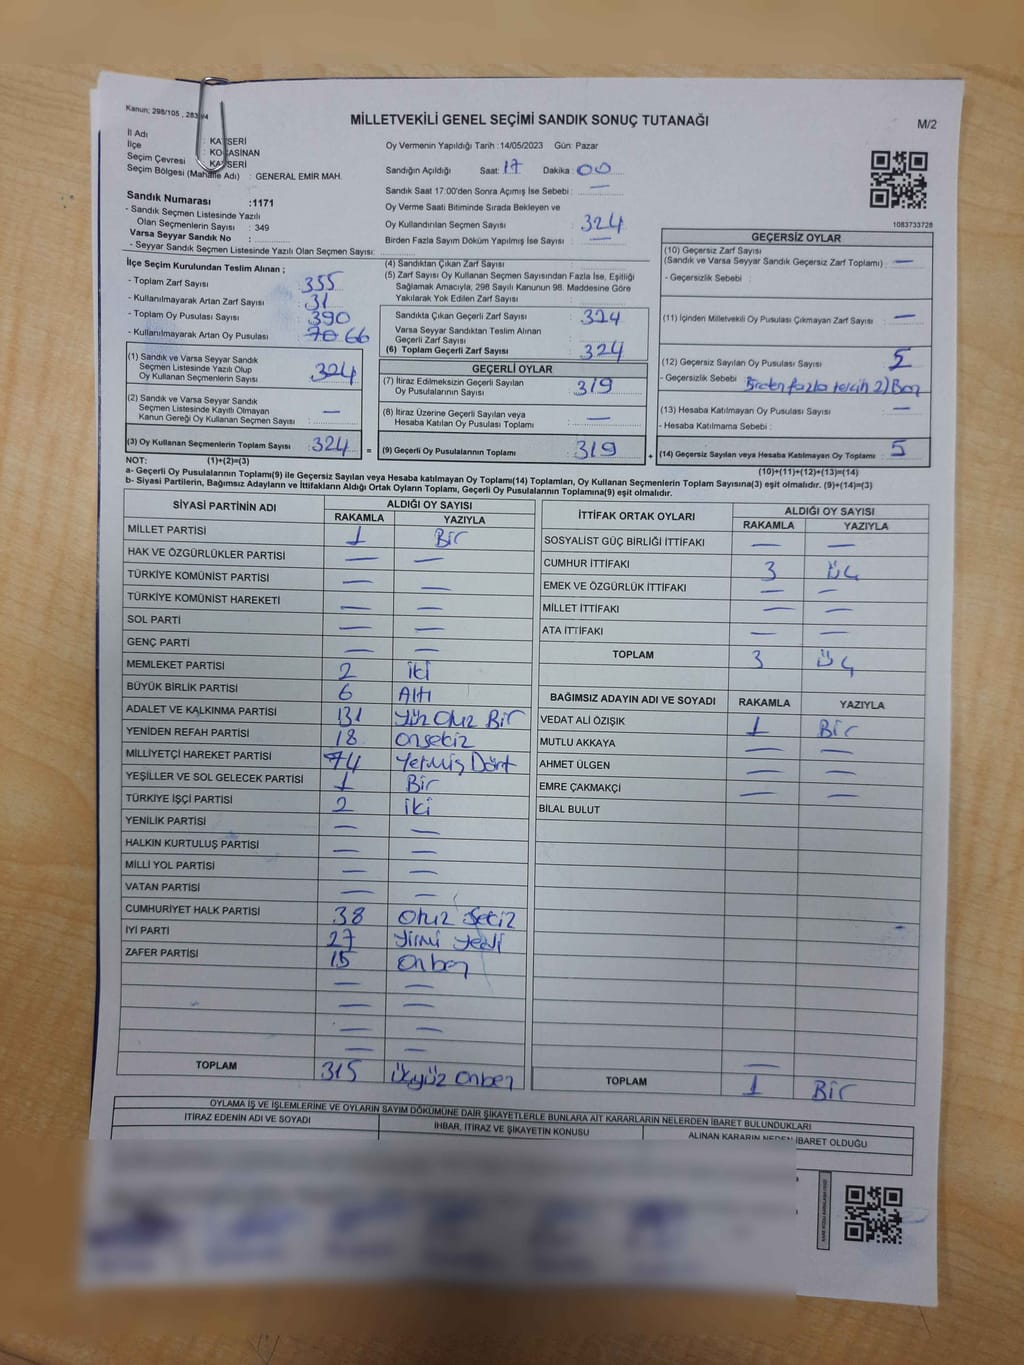 Kanun; 298/105 , 283
MİLLETVEKİLİ GENEL SEÇİMİ SANDIK SONUÇ TUTANAĞI
M/2
İl Adı : KAYSERİ
İlçe : KOCASİNAN
Seçim Çevresi : KAYSERİ
Seçim Bölgesi (Mahalle Adı) : GENERAL EMİR MAH.
Sandık Numarası :1171
- Sandık Seçmen Listesinde Yazılı
Olan Seçmenlerin Sayısı : 349
Varsa Seyyar Sandık No :
- Seyyar Sandık Seçmen Listesinde Yazılı Olan Seçmen Sayısı:
Oy Vermenin Yapıldığı Tarih : 14/05/2023 Gün: Pazar
Sandığın Açıldığı Saat: 17 Dakika : 00
Sandık Saat 17:00'den Sonra Açılmış İse Sebebi : —
Oy Verme Saati Bitiminde Sırada Bekleyen ve
Oy Kullandırılan Seçmen Sayısı : 324
Birden Fazla Sayım Döküm Yapılmış İse Sayısı : —
1083733728
İlçe Seçim Kurulundan Teslim Alınan ;
- Toplam Zarf Sayısı : 355
- Kullanılmayarak Artan Zarf Sayısı : 31
- Toplam Oy Pusulası Sayısı : 390
- Kullanılmayarak Artan Oy Pusulası : 70 66
(1) Sandık ve Varsa Seyyar Sandık
Seçmen Listesinde Yazılı Olup
Oy Kullanan Seçmenlerin Sayısı : 324
(2) Sandık ve Varsa Seyyar Sandık
Seçmen Listesinde Kayıtlı Olmayan
Kanun Gereği Oy Kullanan Seçmen Sayısı : —
(3) Oy Kullanan Seçmenlerin Toplam Sayısı : 324 =
(4) Sandıktan Çıkan Zarf Sayısı :
(5) Zarf Sayısı Oy Kullanan Seçmen Sayısından Fazla İse, Eşitliği
Sağlamak Amacıyla, 298 Sayılı Kanunun 98. Maddesine Göre
Yakılarak Yok Edilen Zarf Sayısı :
Sandıkta Çıkan Geçerli Zarf Sayısı : 324
Varsa Seyyar Sandıktan Teslim Alınan
Geçerli Zarf Sayısı :
(6) Toplam Geçerli Zarf Sayısı : 324
GEÇERLİ OYLAR
(7) İtiraz Edilmeksizin Geçerli Sayılan
Oy Pusulalarının Sayısı : 319
(8) İtiraz Üzerine Geçerli Sayılan veya
Hesaba Katılan Oy Pusulası Toplamı : —
(9) Geçerli Oy Pusulalarının Toplamı : 319 +
GEÇERSİZ OYLAR
(10) Geçersiz Zarf Sayısı
(Sandık ve Varsa Seyyar Sandık Geçersiz Zarf Toplamı) : —
- Geçersizlik Sebebi :
(11) İçinden Milletvekili Oy Pusulası Çıkmayan Zarf Sayısı : —
(12) Geçersiz Sayılan Oy Pusulası Sayısı : 5
- Geçersizlik Sebebi : Birden fazla tercih 2) Boş
(13) Hesaba Katılmayan Oy Pusulası Sayısı : —
- Hesaba Katılmama Sebebi :
(14) Geçersiz Sayılan veya Hesaba Katılmayan Oy Toplamı : 5
NOT: (1)+(2)=(3)
(10)+(11)+(12)+(13)=(14)
a- Geçerli Oy Pusulalarının Toplamı(9) ile Geçersiz Sayılan veya Hesaba katılmayan Oy Toplamı(14) Toplamları, Oy Kullanan Seçmenlerin Toplam Sayısına(3) eşit olmalıdır. (9)+(14)=(3)
b- Siyasi Partilerin, Bağımsız Adayların ve İttifakların Aldığı Ortak Oyların Toplamı, Geçerli Oy Pusulalarının Toplamına(9) eşit olmalıdır.
SİYASİ PARTİNİN ADI ALDIĞI OY SAYISI
RAKAMLA YAZIYLA
MİLLET PARTİSİ 1 Bir
HAK VE ÖZGÜRLÜKLER PARTİSİ — —
TÜRKİYE KOMÜNİST PARTİSİ — —
TÜRKİYE KOMÜNİST HAREKETİ — —
SOL PARTİ — —
GENÇ PARTİ — —
MEMLEKET PARTİSİ 2 iki
BÜYÜK BİRLİK PARTİSİ 6 Altı
ADALET VE KALKINMA PARTİSİ 131 Yüz Otuz Bir
YENİDEN REFAH PARTİSİ 18 onsekiz
MİLLİYETÇİ HAREKET PARTİSİ 74 Yetmiş Dört
YEŞİLLER VE SOL GELECEK PARTİSİ 1 Bir
TÜRKİYE İŞÇİ PARTİSİ 2 iki
YENİLİK PARTİSİ — —
HALKIN KURTULUŞ PARTİSİ — —
MİLLİ YOL PARTİSİ — —
VATAN PARTİSİ — —
CUMHURİYET HALK PARTİSİ 38 otuz sekiz
İYİ PARTİ 27 Yirmi Yedi
ZAFER PARTİSİ 15 onbeş
— —
— —
— —
— —
TOPLAM 315 Üçyüz onbeş
İTTİFAK ORTAK OYLARI ALDIĞI OY SAYISI
RAKAMLA YAZIYLA
SOSYALİST GÜÇ BİRLİĞİ İTTİFAKI — —
CUMHUR İTTİFAKI 3 Üç
EMEK VE ÖZGÜRLÜK İTTİFAKI — —
MİLLET İTTİFAKI — —
ATA İTTİFAKI — —
TOPLAM 3 Üç
BAĞIMSIZ ADAYIN ADI VE SOYADI RAKAMLA YAZIYLA
VEDAT ALİ ÖZIŞIK 1 Bir
MUTLU AKKAYA — —
AHMET ÜLGEN — —
EMRE ÇAKMAKÇİ — —
BİLAL BULUT
TOPLAM 1 Bir
OYLAMA İŞ VE İŞLEMLERİNE VE OYLARIN SAYIM DÖKÜMÜNE DAİR ŞİKAYETLERLE BUNLARA AİT KARARLARIN NELERDEN İBARET BULUNDUKLARI
İTİRAZ EDENİN ADI VE SOYADI
İHBAR, İTİRAZ VE ŞİKAYETİN KONUSU
ALINAN KARARIN NEDEN İBARET OLDUĞU